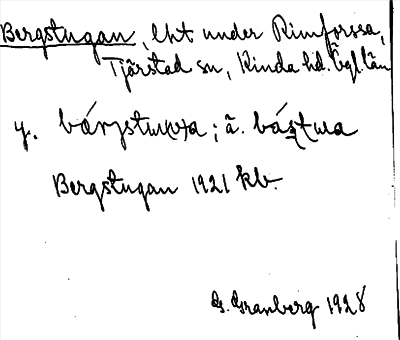 Bergstugan, lht under Rimforssa,
Tjärstad sn, Kinda hd. Ögl. län
y. ; ä.
Bergstugan 1921 kb.
G. Granberg 1928